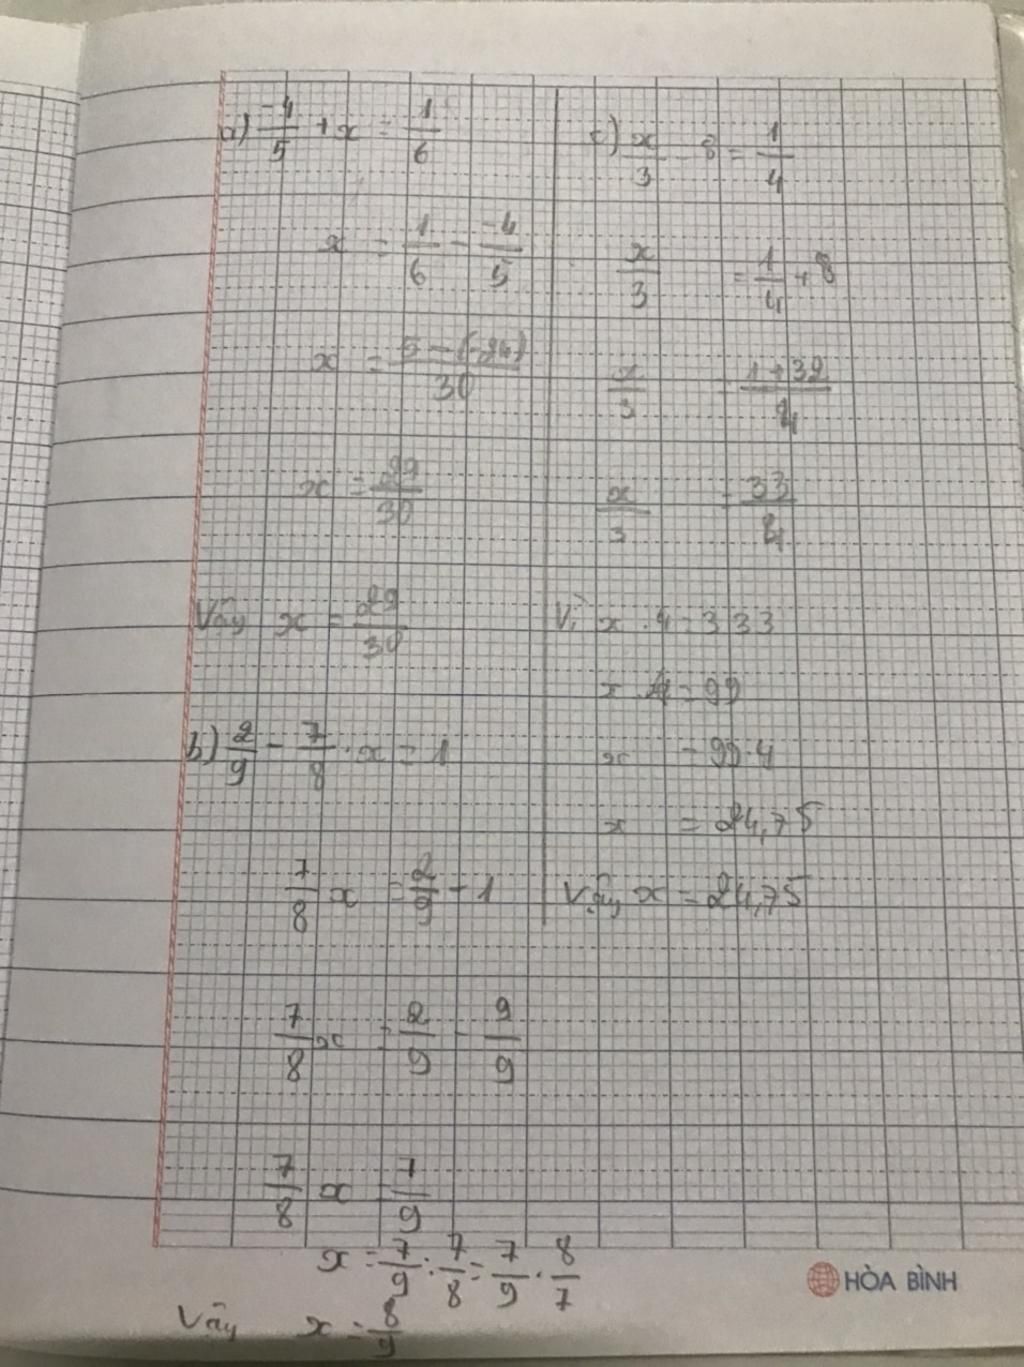 a) -4/5 + x = 1/6
x = 1/6 - -4/5
x = 5 - (-24)/30
x = 29/30
Vậy x = 29/30
b) 2/9 - 7/8 . x = 1
7/8 x = 2/9 - 1
7/8 x = 2/9 - 9/9
7/8 x = 7/9
x = 7/9 : 7/8 = 7/9 . 8/7
Vậy x = 8/9
c) x/3 - 8 = 1/4
x/3 = 1/4 + 8
x/3 = 1+32/4
x/3 = 33/4
Vì x . 4 = 3 33
x . 4 = 99
x = 99 . 4
x = 24,75
Vậy x = 24,75
HÒA BÌNH